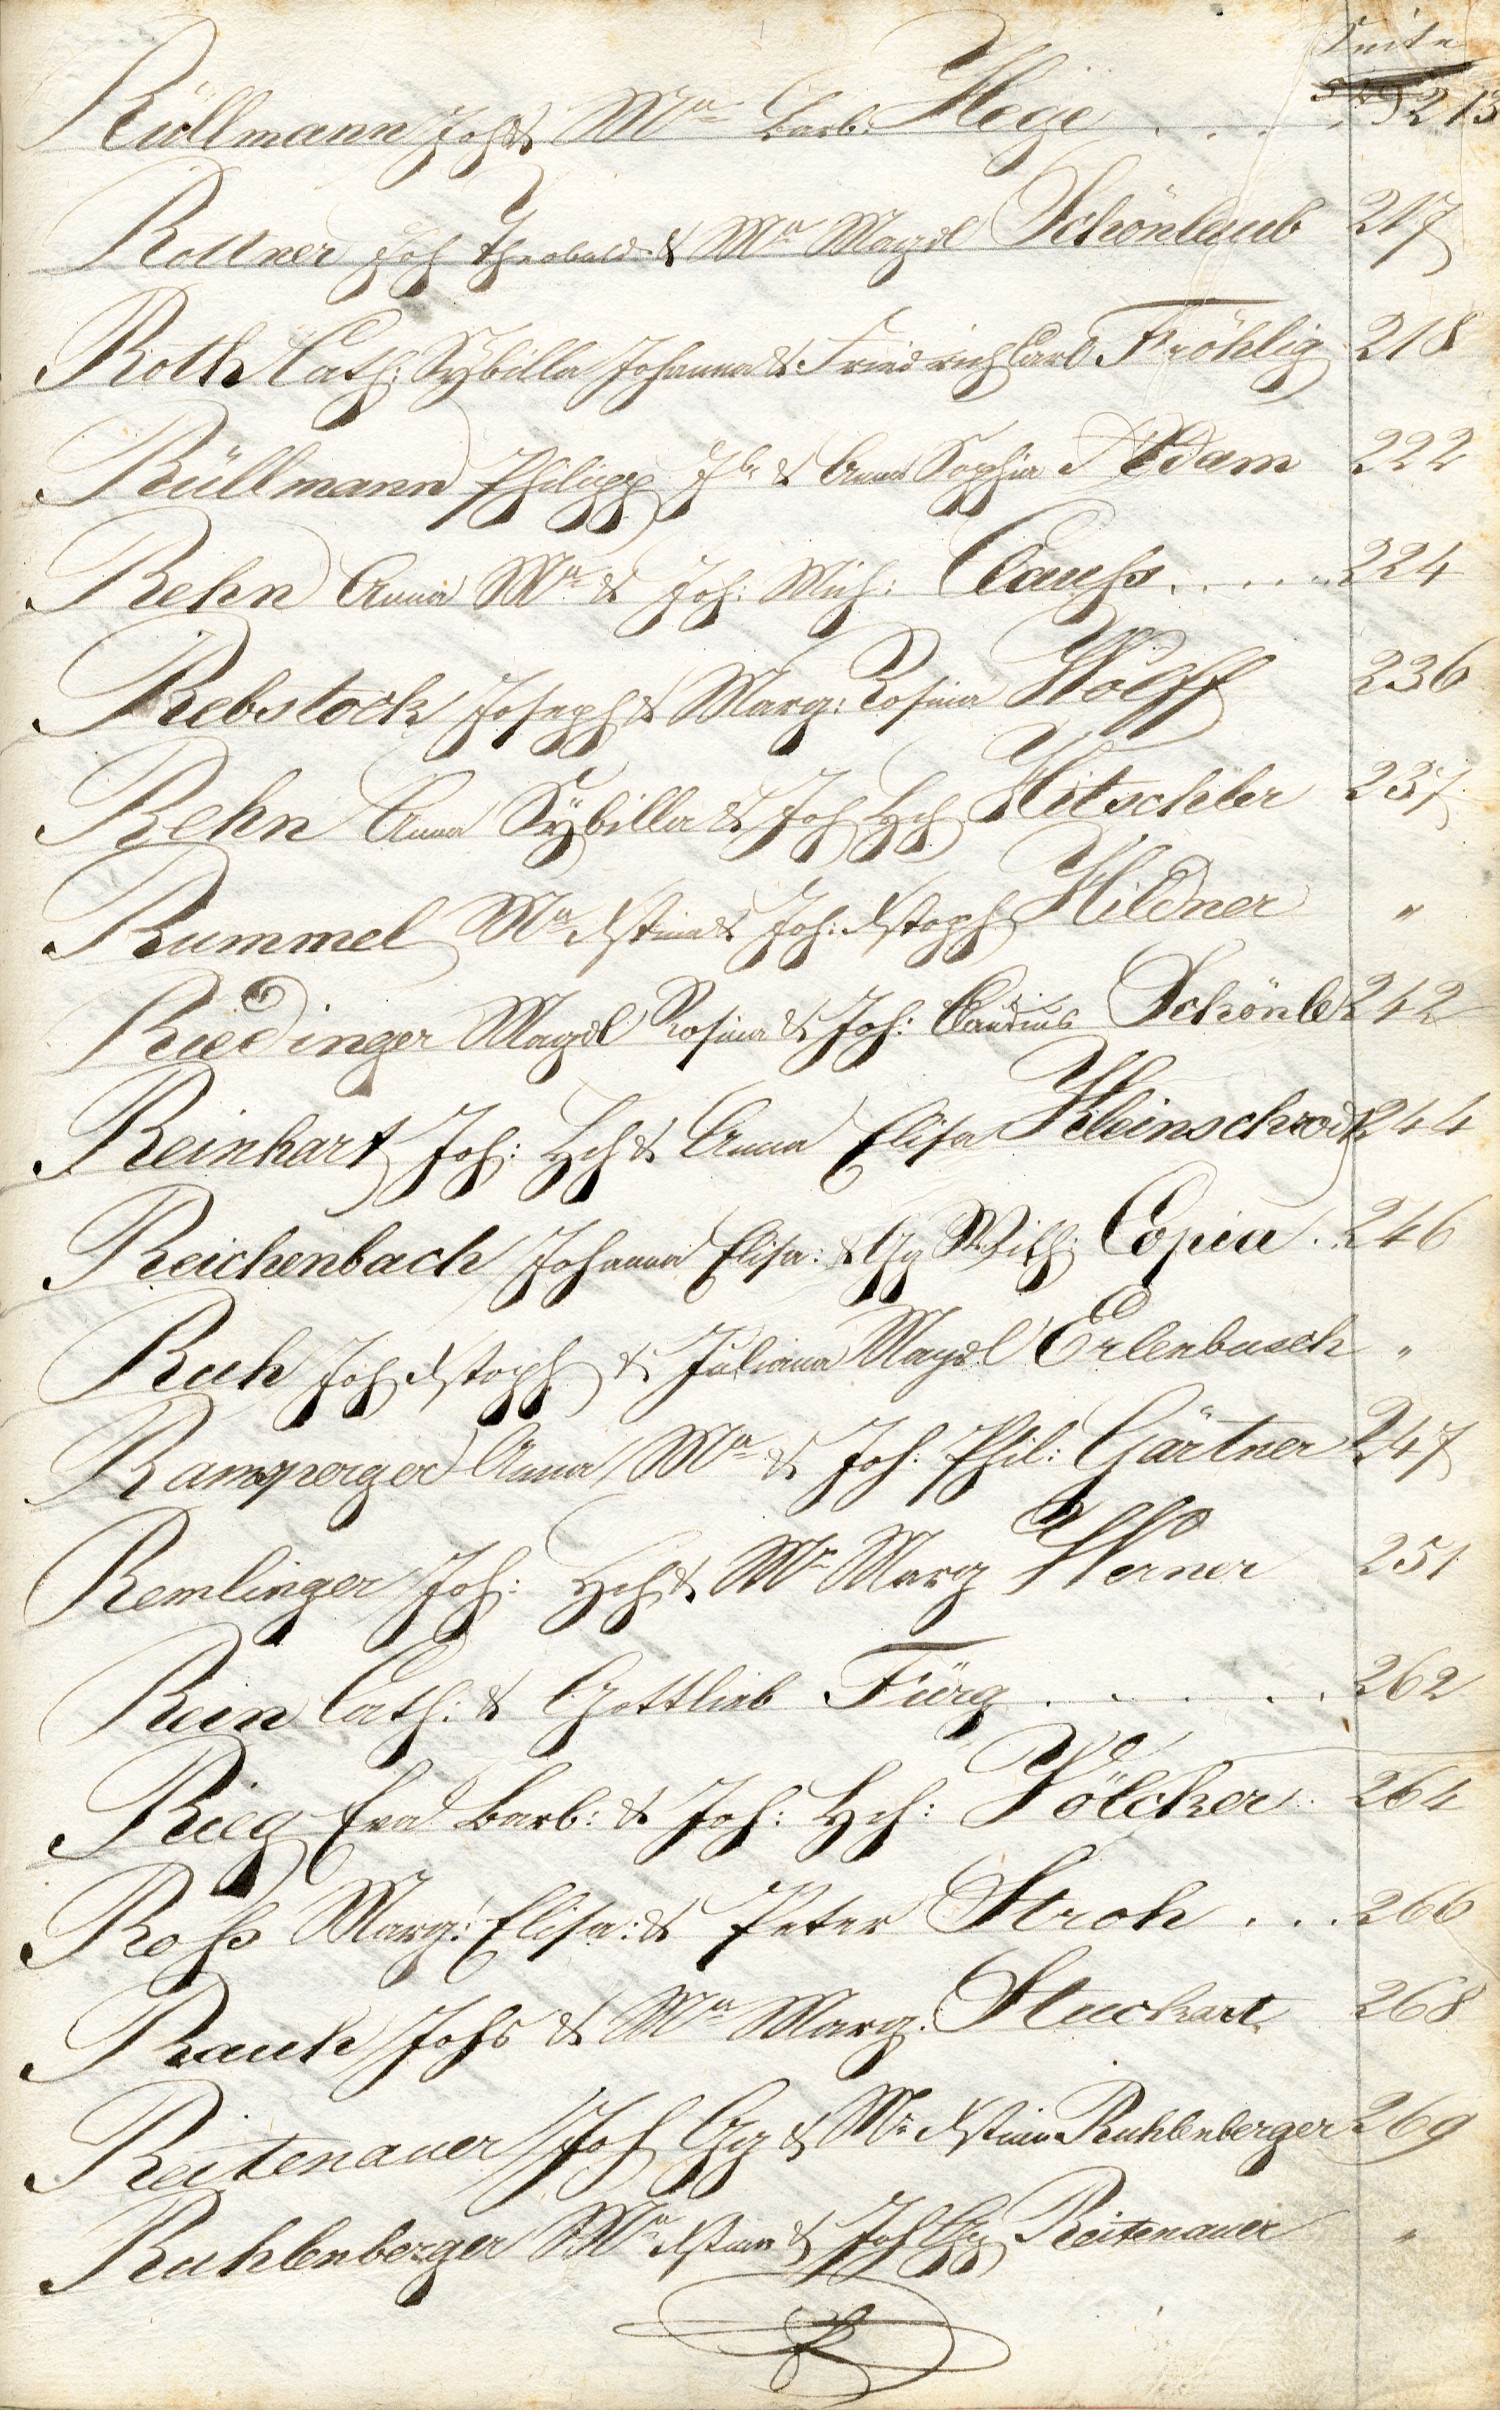 Seite
Rüllmann Joh & Ma Barb: Hege . . . . 213
Rottner Joh Theobald & Ma Magdl Schönlaub 217
Roth Cath: Sybilla Johanna & Friedrich Carl Fröhlig 218
Rüllmann Philipp Jb & Anna Sophia Adam 222
Rehn Anna Ma & Joh: Mich: Clauß . . . . . 224
Rebstock Joseph & Marg: Rosina Wolff 236
Rehn Anna Sÿbilla & Joh Hch Hitschler 237
Rummel Ma Xstina & Joh: Xstoph Hildner "
Riedinger Magdl Rosina & Joh: Claudius Schönle 242
Reinhart Joh: Hch & Anna Elisa Kleinschrodt 244
Reichenbach Johanna Elisa: & Gg Wilh: Copia . . 246
Ruh Joh Xstoph & Juliana Magdl Erlenbusch "
Ramsperger Anna Ma & Joh: Phil: Gärtner 247
Remlinger Joh: Hch & Ma Marg Werner 251
Rein Cath: & Gottlieb Fürg . . . . . 262
Rieg Eva Barb: & Joh: Hch: Völcker . 264
Roß Marg: Elisa: & Peter Stroh . . . 266
Rauh Johs & Ma Marg: Stuckart 268
Reitenauer Joh Gg & Ma Xstina Ruhlenberger 269
Ruhlenberger Ma Xstina & Joh Gg Reitenauer "